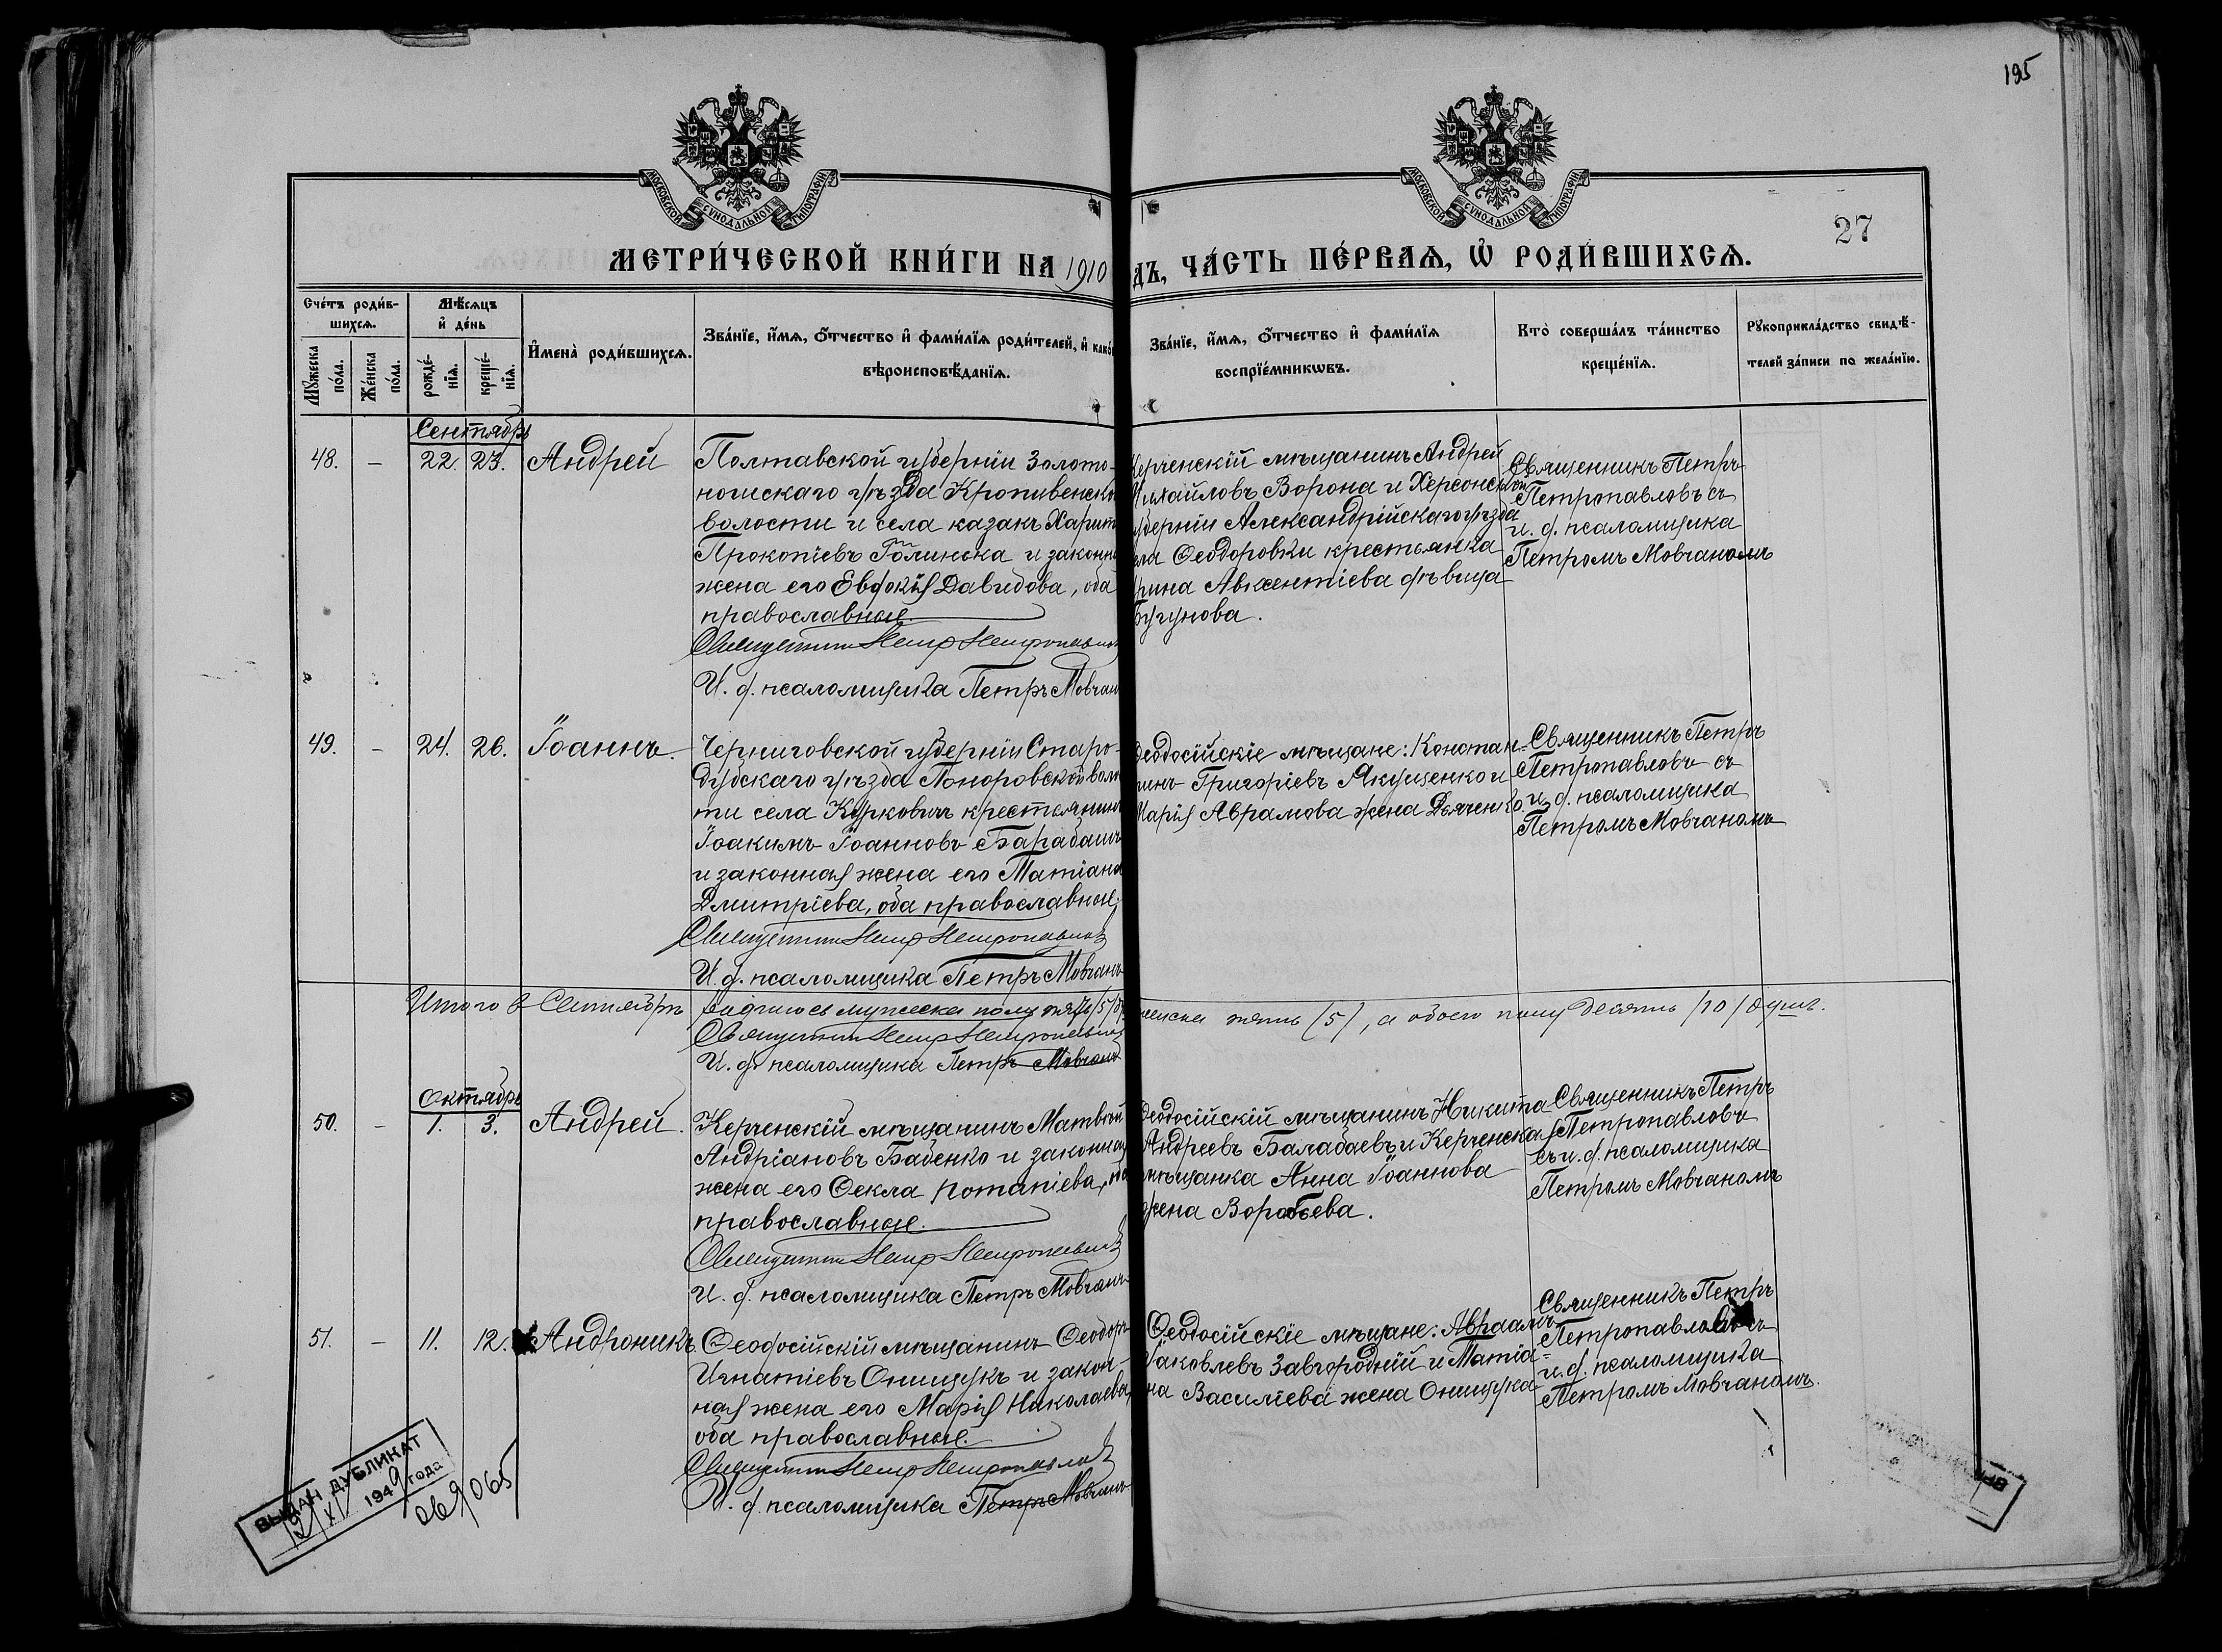 195
27
МОСКОВСКОЙ СѴНОДАЛЬНОЙ ТИПОГРАФІИ
МОСКОВСКОЙ СѴНОДАЛЬНОЙ ТИПОГРАФІИ
МЕТРИ́ЧЕСКОЙ КНИ́ГИ НА 1910
ДЪ, ЧА́СТЬ ПЕ́РВАѦ, Ѽ РОДИ́ВШИХСѦ.
Сче́тъ роди́в-
шихсѧ.
Мꙋ́жеска по́ла.
Же́нска по́ла.
Мѣ́сѧцъ
и҆ де́нь
рожде́-
нїѧ.
креще́-
нїѧ.
И҆мена̀ роди́вшихсѧ.
Зва́нїе, и҆́мѧ, ѻ҆́тчество и҆ фами́лїѧ роди́телей, и҆ како́
вѣроисповѣ́данїѧ.
Зва́нїе, и҆́мѧ, ѻ҆́тчество и҆ фами́лїѧ
воспрїе́мникѡвъ.
Кто̀ соверша́лъ та́инство
креще́нїѧ.
Рꙋкоприкла́дство свидѣ́-
телей за́писи по жела́нїю.
Сентябрь
48. — 22. 23. Андрей
Полтавской губерніи Золото-
ношскаго уѣзда Кропивенской
волости и села казакъ Харит
Прокопіевъ и законная
жена его Евдокія Давидова, оба
православные.
Священникъ Петръ Петропавловъ
И. д. псаломщика Петръ Мовчан
Керченскій мѣщанинъ Андрей
Михайловъ Ворона и Херсонской
губерніи Александрійскаго уѣзда
села Ѳеодоровки крестьянка
Ирина Авксентіева дѣвица
Бугунова.
Священникъ Петръ
Петропавловъ съ
и. д. псаломщика
Петромъ Мовчаномъ
49. — 24. 26. Іоаннъ.
Черниговской губерніи Старо-
дубскаго уѣзда Понуровской воло
ти села Курковичъ крестьянинъ
Іоакимъ Іоанновъ Барабашъ
и законная жена его Татіана
Дмитріева, оба православные.
Священникъ Петръ Петропавловъ
И. д. псаломщика Петръ Мовчанъ
Ѳеодосійскіе мѣщане: Констан-
тинъ Григоріевъ Якущенко и
Марія Аврамова жена Дьяченко.
Священникъ Петръ
Петропавловъ съ
и. д. псаломщика
Петромъ Мовчаномъ
Итого въ Сентябрѣ родилось мужеска полу пять /5/
женска пять (5), а обоего полу десять /10/ душъ.
Священникъ Петръ Петропавловъ
И. д. псаломщика Петръ Мовчанъ
Октябрь
50. — 1. 3. Андрей.
Керченскій мѣщанинъ Матвѣй
Андріановъ Бабенко и законная
жена его Ѳекла Потапіева, оба
православные.
Священникъ Петръ Петропавловъ
И. д. псаломщика Петръ Мовчанъ
Ѳеодосійскій мѣщанинъ Никита
Андреевъ Балабаевъ и Керченская
мѣщанка Анна Іоаннова
жена Воробьева.
Священникъ Петръ
Петропавловъ
съ и. д. псаломщика
Петромъ Мовчаномъ
51. — 11. 12. Андроникъ.
Ѳеодосійскій мѣщанинъ Ѳеодоръ
Игнатіевъ Онищукъ и закон-
ная жена его Марія Николаева,
оба православные.
Священникъ Петръ Петропавловъ
И. д. псаломщика Петръ Мовчанъ
Ѳеодосійскіе мѣщане: Авраамъ
Іаковлевъ Завгородній и Татіа-
на Василіева жена Онищука
Священникъ Петръ
Петропавловъ съ
и. д. псаломщика
Петромъ Мовчаномъ.
ВЫДАН ДУБЛИКАТ
1949 года
069065